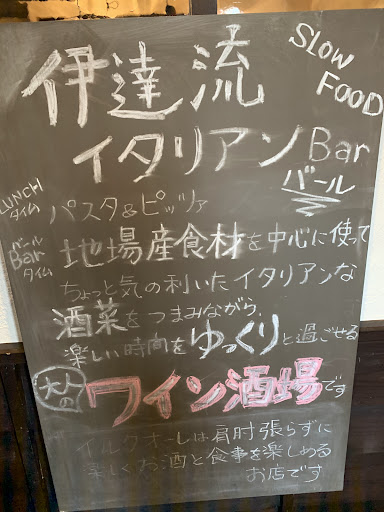 伊達流
SLOW
FOOD
イタリアンBar
バール
LUNCH
タイム
パスタ&ピッツァ
バール
Bar
タイム
地場産食材を中心に使って
ちょっと気の利いたイタリアンな
酒菜をつまみながら、
楽しい時間をゆっくりと過ごせる
大人の
ワイン酒場です
イルクオーレは肩肘張らずに
楽しくお酒と食事を楽しめる
お店です